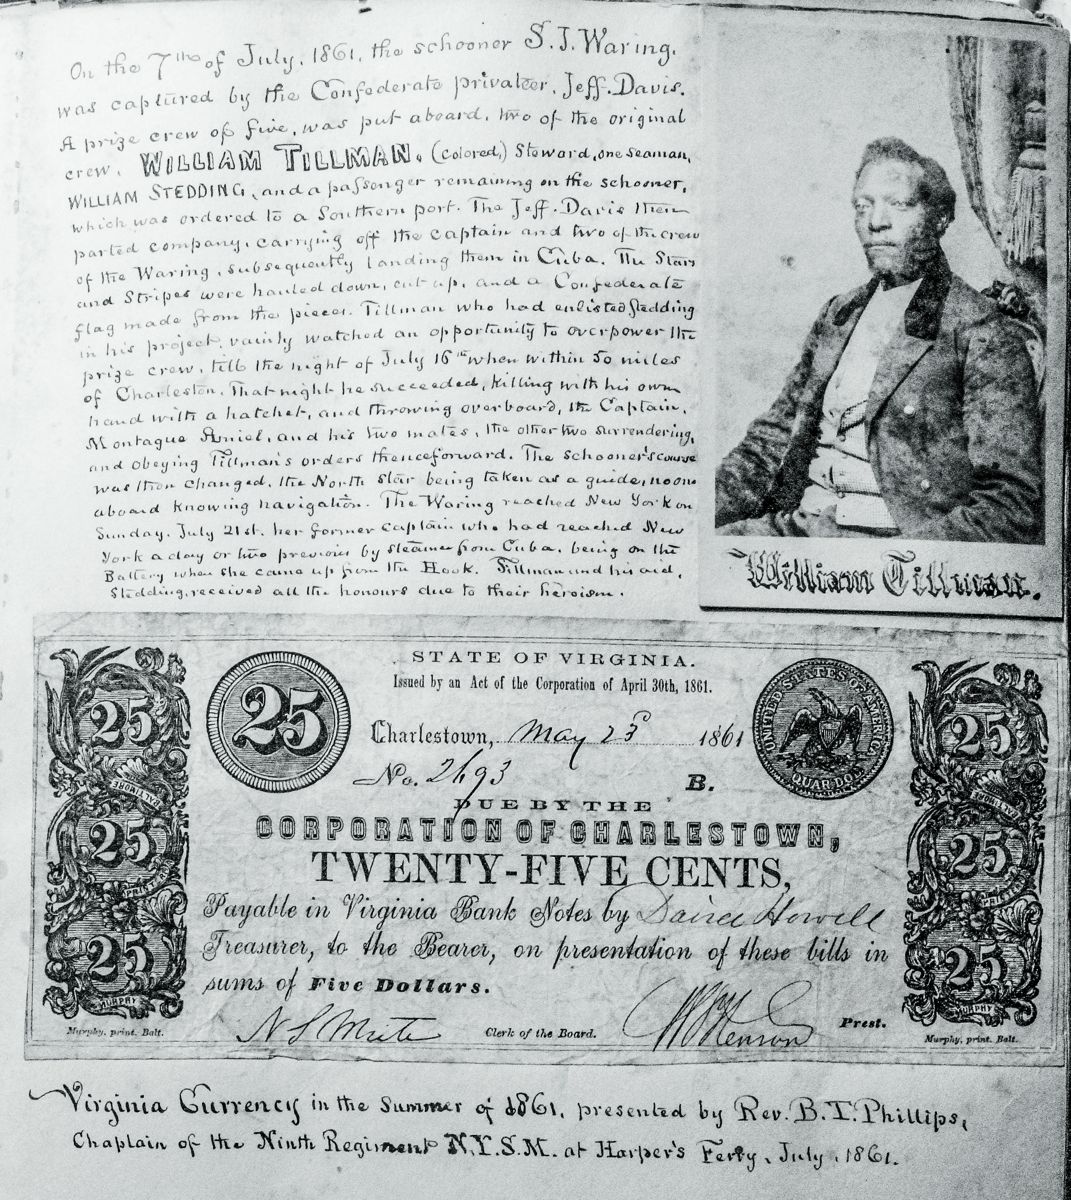 On the 7th of July, 1861, the schooner S.J. Waring,
was captured by the Confederate privateer, Jeff. Davis.
A prize crew of five, was put aboard, two of the original
crew, WILLIAM TILLMAN, (colored,) Steward, one seaman,
WILLIAM STEDDING, and a passenger remaining on the schooner,
which was ordered to a Southern port. The Jeff. Davis then
parted company, carrying off the captain and two of the crew
of the Waring, subsequently landing them in Cuba. The Stars
and Stripes were hauled down, cut up, and a Confederate
flag made from the pieces. Tillman who had enlisted Stedding
in his project, vainly watched an opportunity to overpower the
prize crew, till the night of July 16th when within 50 miles
of Charleston. That night he succeeded, killing with his own
hand with a hatchet, and throwing overboard, the Captain,
Montague Amiel, and his two mates, the other two surrendering,
and obeying Tillman's orders thenceforward. The schooner's course
was then changed, the North star being taken as a guide, no one
aboard knowing navigation. The Waring reached New York on
Sunday, July 21st. her former captain who had reached New
York a day or two previous by steamer from Cuba, being on the
Battery when she came up from the Hook. Tillman and his aid,
Stedding, received all the honours due to their heroism.
William Tillman.
STATE OF VIRGINIA.
Issued by an Act of the Corporation of April 30th, 1861.
25
Charlestown, May 23d 1861
UNITED STATES OF AMERICA
QUAR. DOL.
No. 2693 B.
DUE BY THE
CORPORATION OF CHARLESTOWN,
TWENTY-FIVE CENTS,
Payable in Virginia Bank Notes by Howell
Treasurer, to the Bearer, on presentation of these bills in
sums of Five Dollars.
Clerk of the Board.
Prest.
25
BALTIMORE
25
PRINTER
25
MURPHY
Murphy, print. Balt.
25
BALTIMORE
25
PRINTER
25
MURPHY
Murphy, print. Balt.
Virginia Currency in the Summer of 1861, presented by Rev. B.T. Phillips,
Chaplain of the Ninth Regiment N.Y.S.M. at Harper's Ferry, July, 1861.